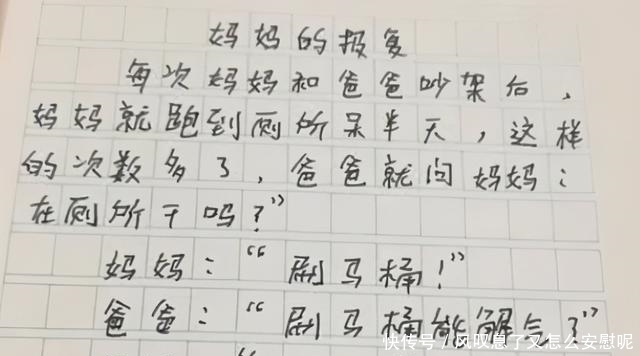 妈妈的报复
每次妈妈和爸爸吵架后，
妈妈就跑到厕所呆半天，这样
的次数多了，爸爸就问妈妈：
在厕所干吗？”
妈妈：“刷马桶！”
爸爸：“刷马桶能解气？”
快传号/风叹息了又怎么安慰呢